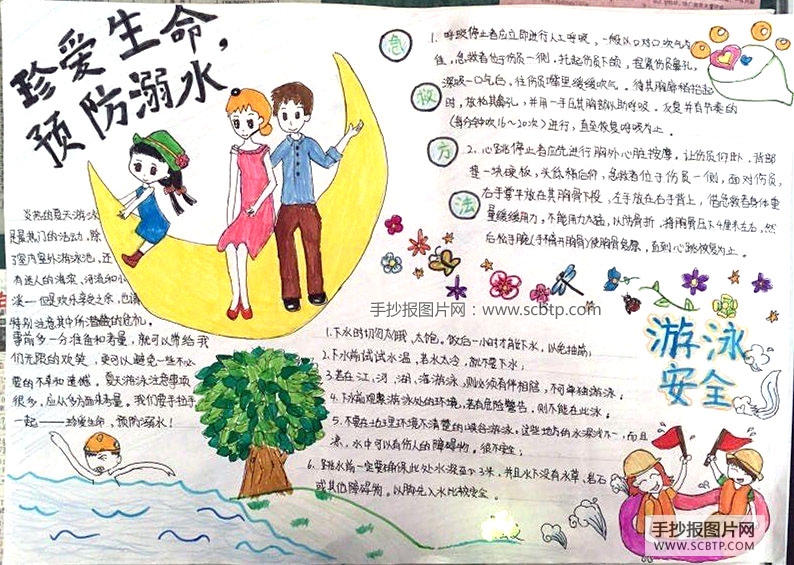 珍爱生命，
预防溺水
炎热的夏天游泳
是最热门的活动，除
了室内室外游泳池，还
有迷人的海滨、河流和小
溪——但是欢乐享受之余，也请
特别注意其中所潜藏的危机。
事前多一分准备和考量，就可以带给我
们无限的欢笑，更可以避免一些不必
要的不幸和遗憾。夏天游泳注意事项
很多，应从多方面来考量。我们要手拉手
一起——珍爱生命，预防溺水！
急
救
方
法
1、呼吸停止者应立即进行人工呼吸，一般以口对口吹气为
佳，急救者位于伤员一侧，托起伤员下颌，捏紧伤员鼻孔，
深吸一口气后，往伤员嘴里缓缓吹气。待其胸廓稍抬起
时，放松其鼻孔，并用一手压其胸部以助呼吸。反复并有节奏的
（每分钟吹16～20次）进行，直至恢复呼吸为止。
2、心跳停止者应先进行胸外心脏按摩。让伤员仰卧，背部
垫一块硬板，头低稍后仰，急救者位于伤员一侧，面对伤员，
右手掌平放在其胸骨下段，左手放在右手背上，借急救者身体重
量缓缓用力，不能用力太猛，以防骨折，将胸骨压下4厘米左右，然
后松手腕（手不离开胸骨）使胸骨复原，直到心跳恢复为止。
手抄报图片网：www.scbtp.com
游泳
安全
1.下水时切勿太饿、太饱。饭后一小时才能下水，以免抽筋；
2.下水前试试水温，若水太冷，就不要下水；
3.若在江、河、湖、海游泳，则必须有伴相陪，不可单独游泳。
4.下水前观察游泳处的环境，若有危险警告，则不能在此泳。
5.不要在地理环境不清楚的峡谷游泳。这些地方的水深浅不一，而且
凉，水中可以有伤人的障碍物。很不安全；
6.跳水前一定要确保此处水深至少3米，并且水下没有水草、岩石
或其他障碍物。以脚先入水比较安全。
手抄报图片网
WWW.SCBTP.COM